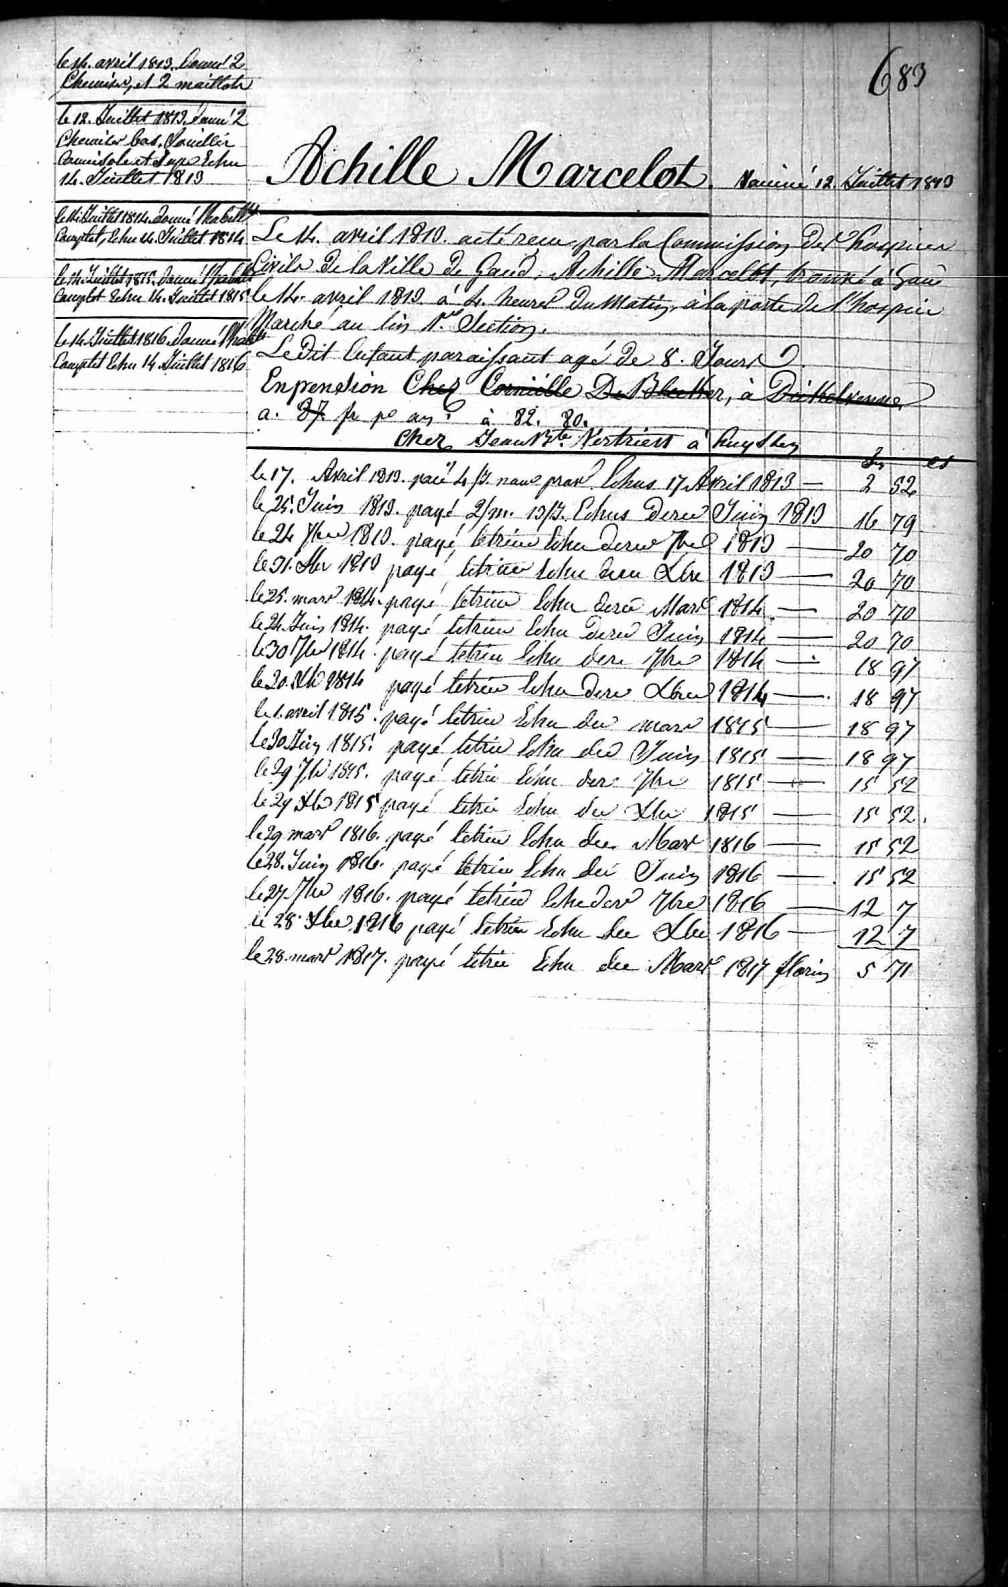 683
le 14. avril 1813. Donné 2
Chemises, et 2 maillots
le 12. Juillet 1813. donné 2
Chemises bas, Souillér
Camisole et Jupe Echu
14. Juillet 1813
le 14. Juillet 1814. Donné l'habillt
Complet, Echu 14. Juillet 1814.
le 14. Juillet 1815. Donné l'habillt
Complet Echu. 14. Juillet 1815
le 14. Juillet 1816. Donné l'habt
Complet Echu 14. Juillet 1816
Achille Marcelot. Vacciné 12. Juillet 1813
Le 14. avril 1813. a été reçu par la Commission des hospices
Civils de la Ville de Gand, Achille Marcelot, trouvé à Gand
le 14. avril 1813. à 4. heures du Matin, à la porte de l'hospice
Marché au lin 1.re Section.
Le Dit Enfant paraissant agé de 8. Jours
En pension Chez Corneille De Blecker, à Dickelvenne,
a. 87. fr. pr an. à 82. 80.
Chez Jean Bte Vertriest à Huysse
le 17. Avril 1813. paié 4/J. Echus 17 Avril 1813 — 2 52
le 25. Juin 1813. payé 2/m. 13/J. Echus Dernr Juin 1813 16 79
le 24 7bre 1813. payé, letrime Echu dernr 7bre 1813 — 20 70
le 31. Xbr 1813 payé, letrime Echu dern Xbre 1813 — 20 70
le 25. mars 1814. payé letrime Echu dern Mars 1814 — 20 70
le 24. Juin 1814. payé letrime Echu Dern Juin 1814 — 20 70
le 30 7br 1814. payé letrim Echu dern 7bre 1814 — 18 97
le 20. Xb 1814 payé letrim Echu dern Xbre 1814 — 18 97
le 1. avril 1815. payé letrim Echu der mars 1815 — 18 97
le 30. Juin 1815. payé letrim Echu der Juin 1815 — 18 97
le 29 7br 1815. payé letrim Echu der 7bre 1815 — 15 52
le 29 Xbr 1815 payé letrim Echu der Xbre 1815 — 15 52.
le 29 mars 1816. payé letrim Echu der Mars 1816 — 15 52
le 28. Juin 1816. payé letrim Echu der Juin 1816 — 15 52
le 27. 7br 1816. payé letrim Echu der 7bre 1816 — 12 7
le 28 Xbre 1816 payé letrim Echu der Xbre 1816 — 12 7
le 28. mars 1817. payé letrim Echu der Mars 1817 florins 5 71